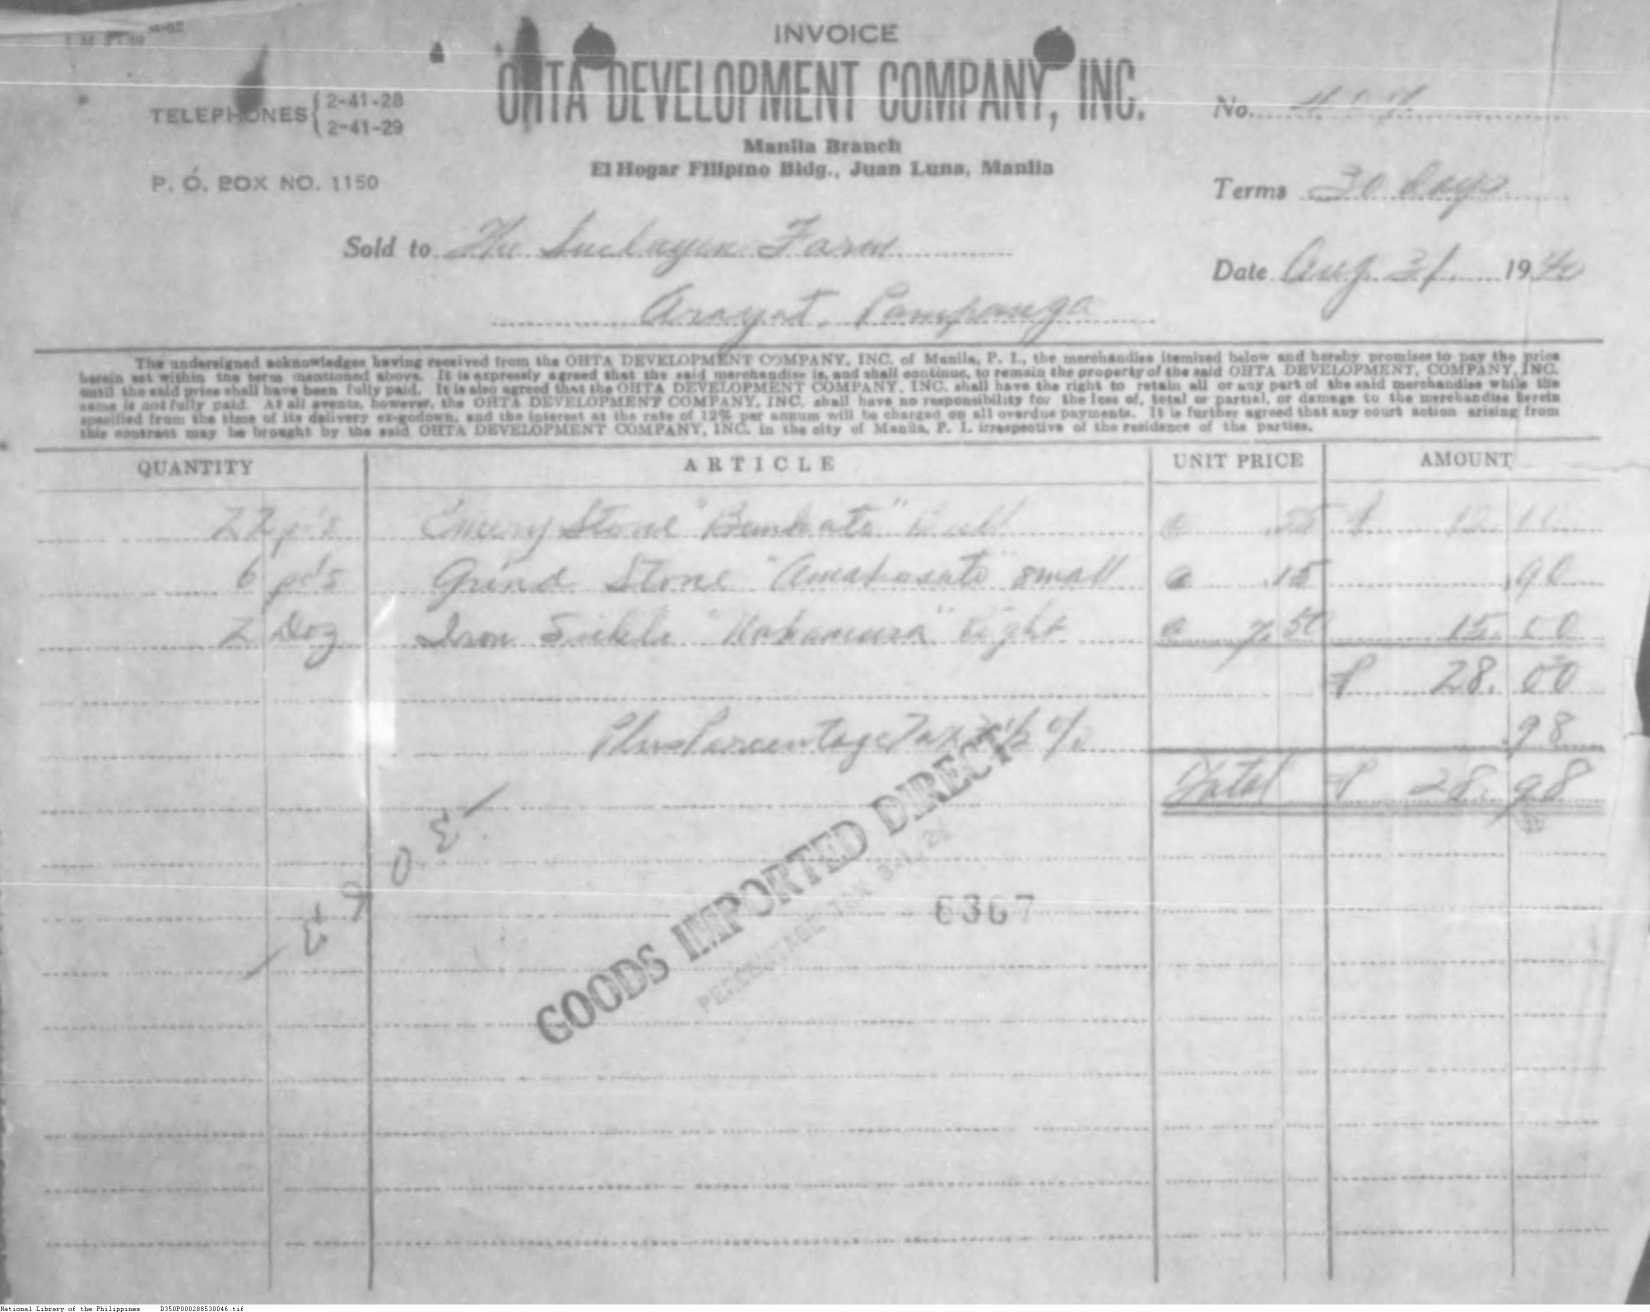 INVOICE
OHTA DEVELOPMENT COMPANY, INC.
Manila Branch
El Hogar Filipino Bldg., Juan Luna, Manila
TELEPHONES { 2-41-28
2-41-29
P. O. BOX NO. 1150
No.
Terms 30 days
Sold to The Farm
Date Aug. 31 1940
Arayat, Pampanga
The undersigned acknowledges having received from the OHTA DEVELOPMENT COMPANY, INC. of Manila, P. I., the merchandise itemized below and hereby promises to pay the price
herein set within the term mentioned above. It is expressly agreed that the said merchandise is, and shall continue, to remain the property of the said OHTA DEVELOPMENT, COMPANY, INC.
until the said price shall have been fully paid. It is also agreed that the OHTA DEVELOPMENT COMPANY, INC. shall have the right to retain all or any part of the said merchandise while the
same is not fully paid. At all events, however, the OHTA DEVELOPMENT COMPANY, INC. shall have no responsibility for the loss of, total or partial, or damage to the merchandise herein
specified from the time of its delivery ex-godown, and the interest at the rate of 12% per annum will be charged on all overdue payments. It is further agreed that any court action arising from
this contract may be brought by the said OHTA DEVELOPMENT COMPANY, INC. in the city of Manila, P. I. irrespective of the residence of the parties.
QUANTITY ARTICLE UNIT PRICE AMOUNT
22 pc's Emery Stone Bull @ .55 ₱ 12.10
6 pc's Grind Stone small @ .15 .90
2 Doz Iron Sickle "Nakamura" Right @ 7.50 15.00
₱ 28.00
Plus Percentage Tax 3½ % .98
Total ₱ 28.98
GOODS IMPORTED DIRECT
PERCENTAGE TAX
6367
National Library of the Philippines D350P000288530046.tif